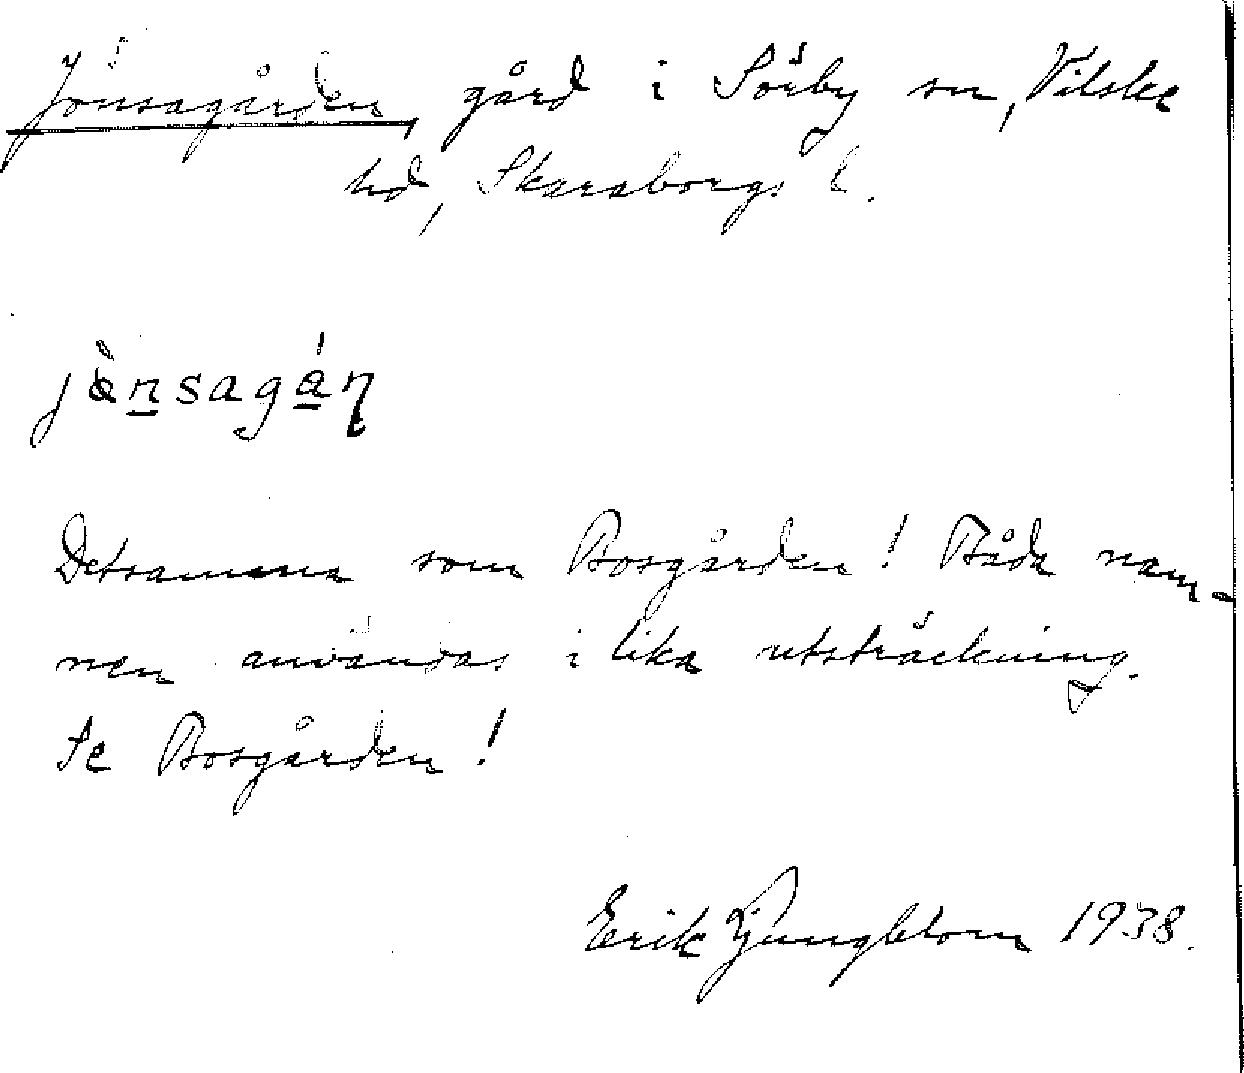 Jönsagården, gård i Sörby sn, Vilske
hd, Skaraborgs l.
jònsagán
Detsamma som Bosgården! Båda nam-
nen användas i lika utsträckning.
Se Bosgården!
Erik Ljungblom 1938.